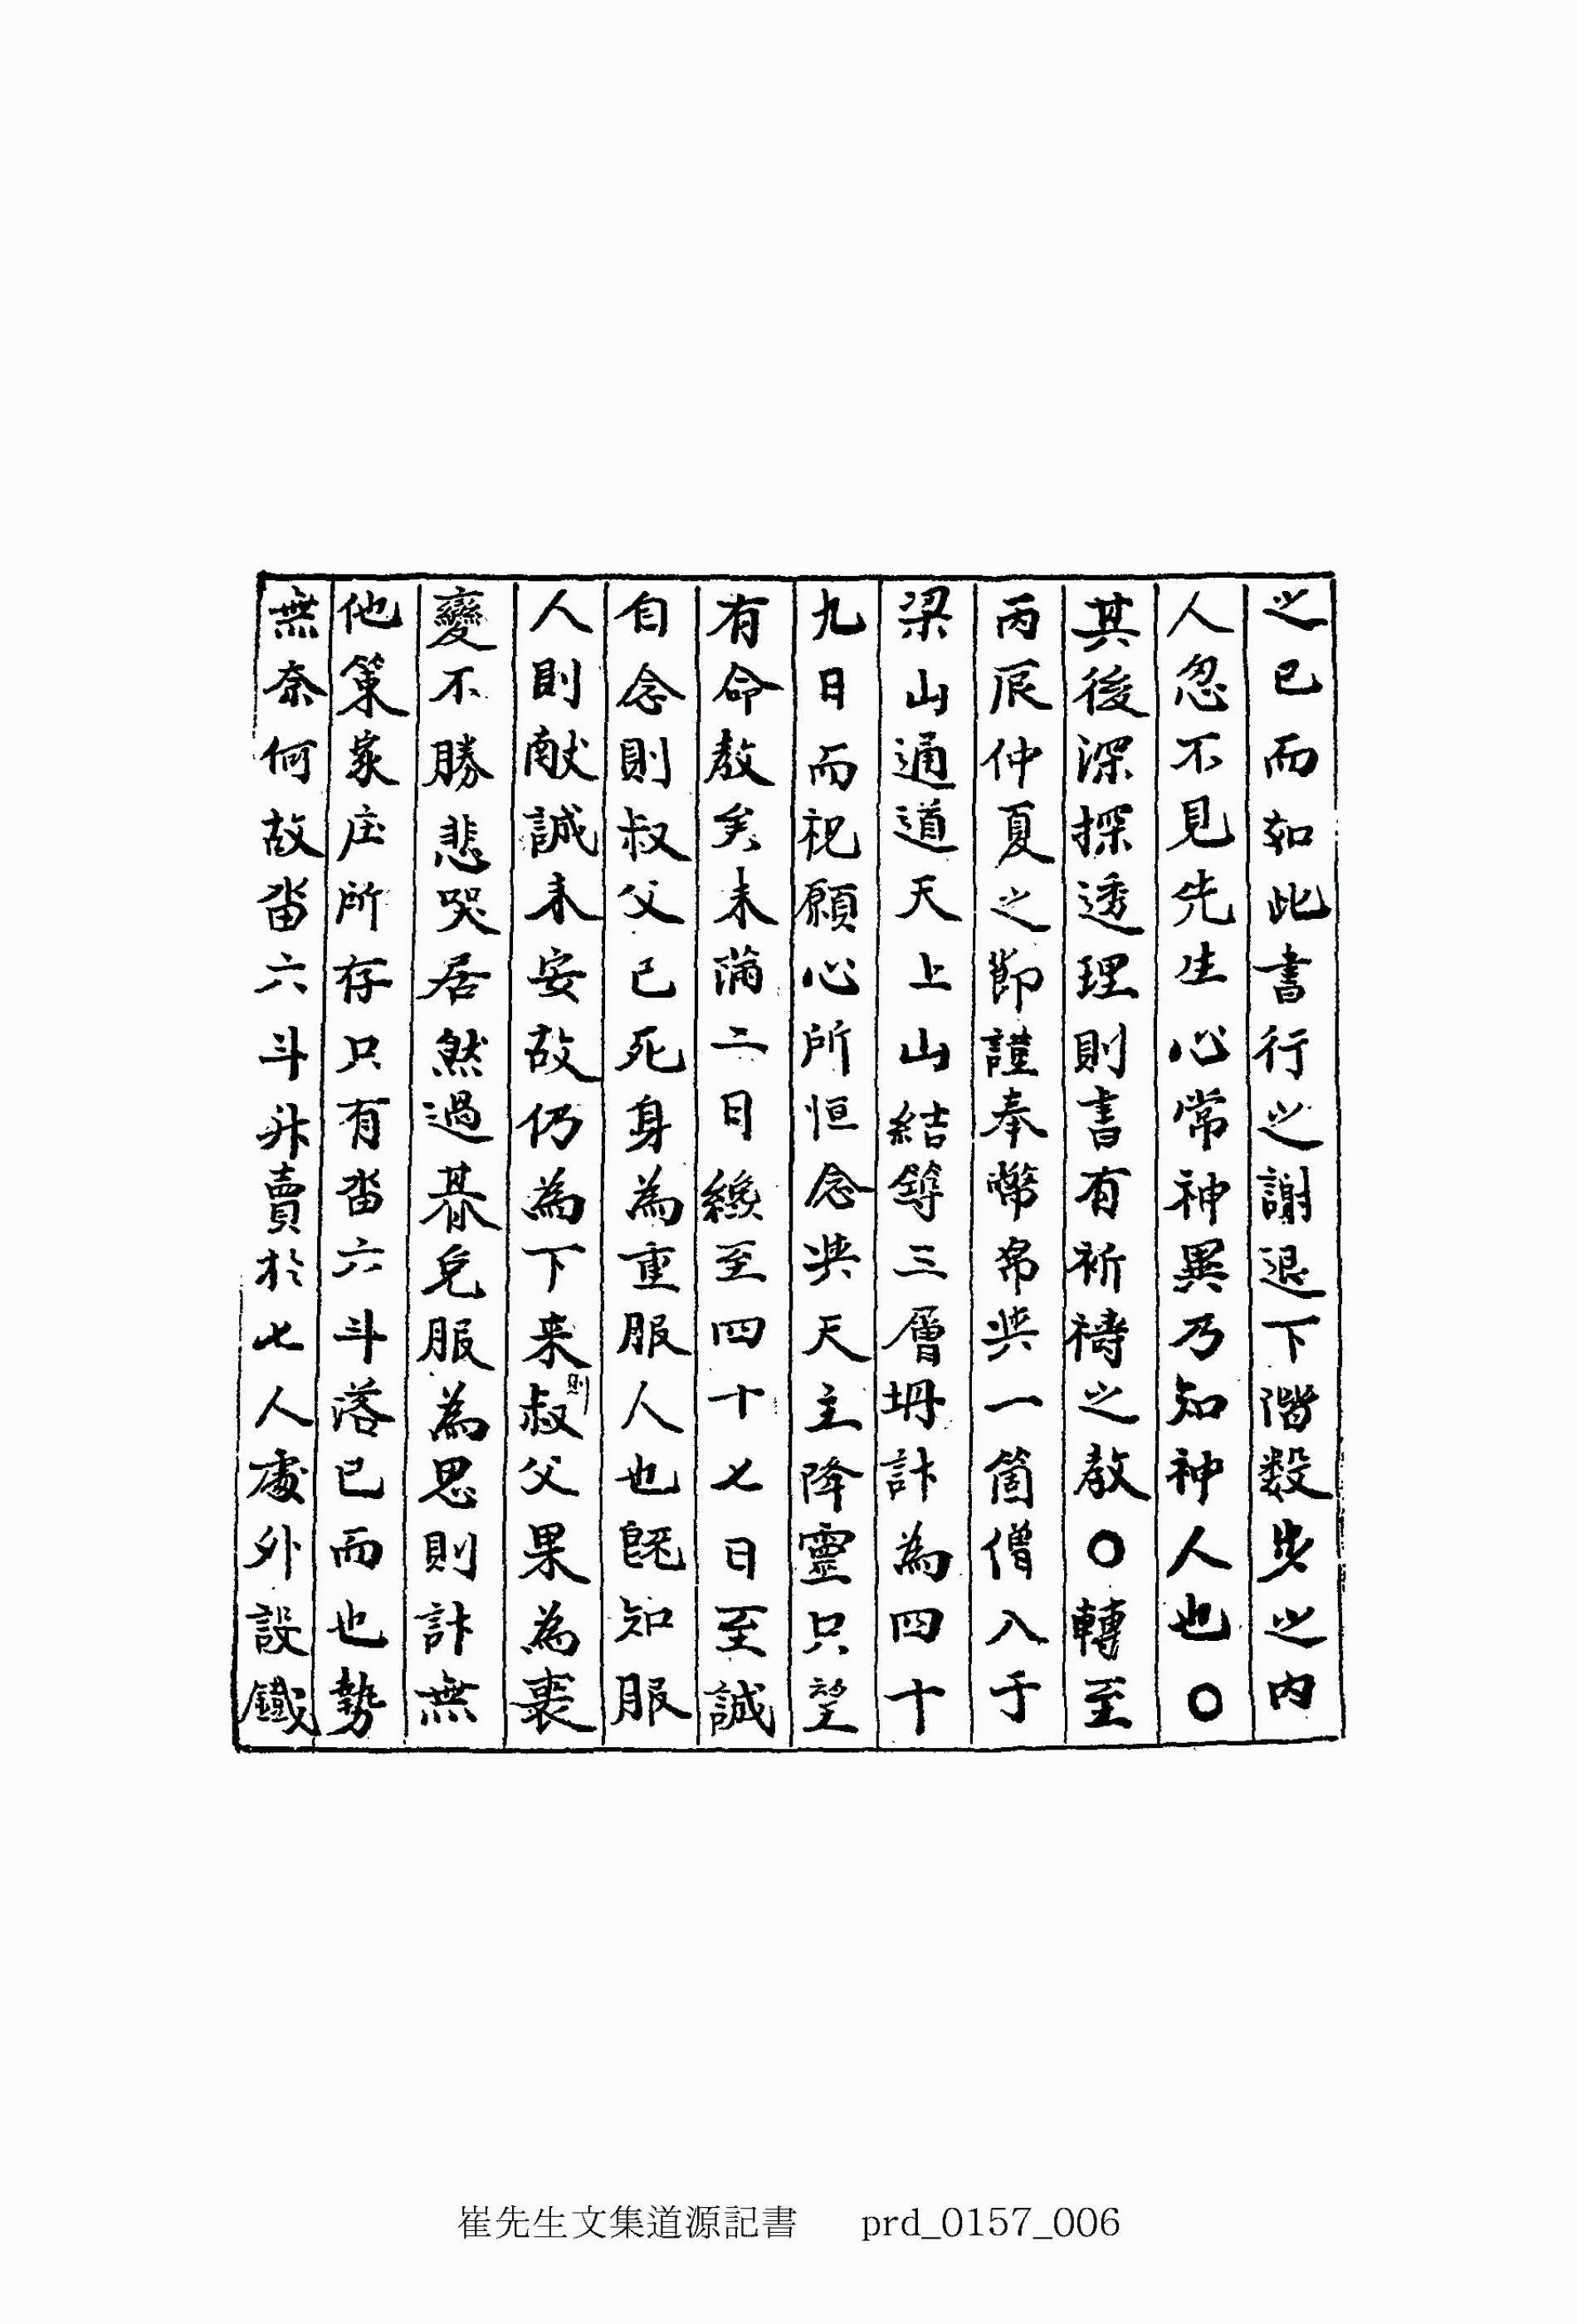 之已而如此書行之謝退下階数步之內
人忽不見先生心常神異乃知神人也〇
其後深探透理則書有祈禱之教〇轉至
丙辰仲夏之節謹奉幣帛与一箇僧入于
梁山通道天上山結築三層坍計為四十
九日而祀願心所恒念与天主降靈只望
有命教矣未滿二日纔至四十七日至誠
自念則叔父已死身為重服人也旣知服
人則献誠未安故仍為下来則叔父果為喪
變不勝悲哭居然過朞免服為思則計無
他策家庄所存只有畓六斗落已而也勢
無奈何故畓六斗升賣於七人處外設鐵
崔先生文集道源記書 prd_0157_006